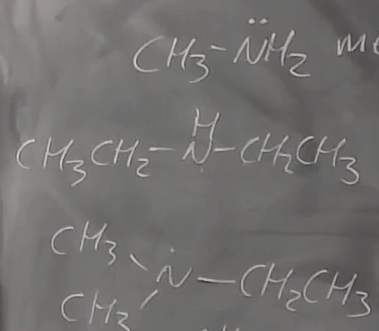 CH3-N̈H2
H
CH3CH2-N-CH2CH3
CH3
N-CH2CH3
CH3